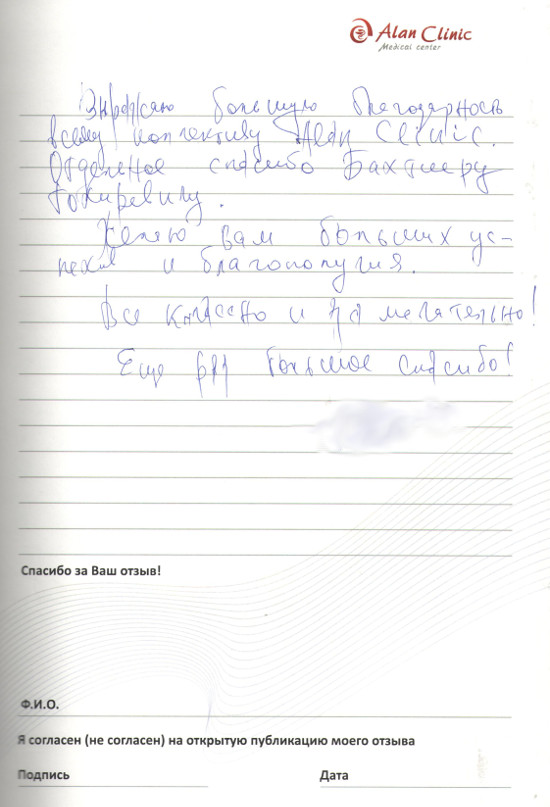 Alan Clinic
Medical center
Выражаю большую благодарность
всему коллективу Alan Clinic.
Отдельное спасибо Бахтиеру
Токиревичу.
Желаю вам больших ус-
пехов и благополучия.
Все классно и замечательно!
Еще раз большое спасибо!
Спасибо за Ваш отзыв!
Ф.И.О.
Я согласен (не согласен) на открытую публикацию моего отзыва
Подпись Дата